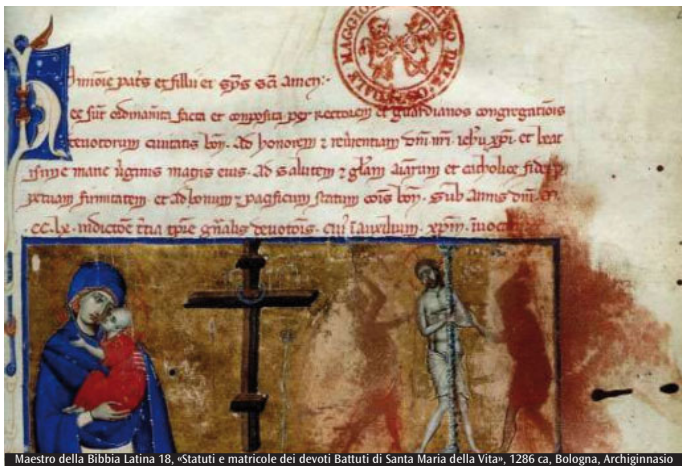 MAGGIO
N noie patris et filii et sps sci amen:
ec sut ordinamta facta et composita per Rectorem et guardianos congregatiois
deuotorum ciuitatis bon. Ad honorem ⁊ reuerentiam dni nri ihu xpi et beat
issime marie uginis matris eius. Ad salutem ⁊ gliam aiarum et catholice fidei p
petuam firmitatem et ad bonum ⁊ pacificum statum cois bon. Sub annis dni m.
cc.lx. indictoe tertia tpre gnalis deuotois. cui auxilium xpm inuoca
Maestro della Bibbia Latina 18, «Statuti e matricole dei devoti Battuti di Santa Maria della Vita», 1286 ca, Bologna, Archiginnasio